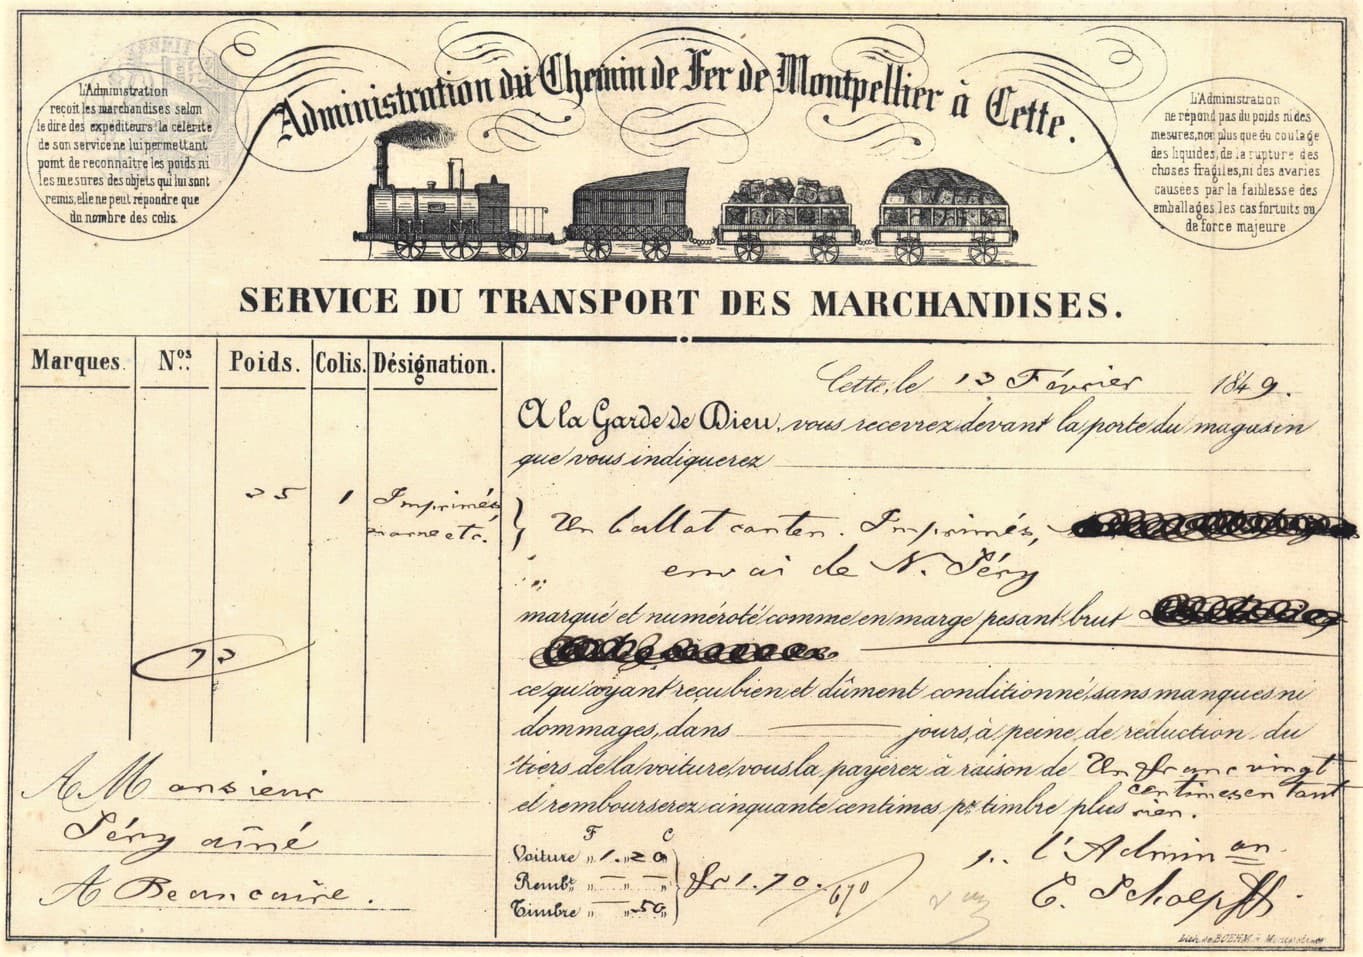 Administration du Chemin de Fer de Montpellier à Cette.
L'Administration
recoit les marchandises selon
le dire des expéditeurs: la célérite
de son service ne lui permettant
point de reconnaître les poids ni
les mesures des objets qui lui sont
remis, elle ne peut répondre que
du nombre des colis.
L'Administration
ne répond pas du poids ni des
mesures, non plus que du coulage
des liquides, de la rupture des
choses fragiles, ni des avaries
causées par la faiblesse des
emballages, les cas fortuits ou
de force majeure
SERVICE DU TRANSPORT DES MARCHANDISES.
Marques. Nos. Poids. Colis. Désignation.
Cette, le 13 Février 1849.
A la Garde de Dieu, vous recevrez devant la porte du magasin
que vous indiquerez
35 1 Imprimés
Un ballot conten. Imprimés,
envoi de N. Péry
marqué et numéroté comme en marge pesant brut
73
ce qu'ayant reçu bien et dûment conditionné, sans manques ni
dommages, dans jours, à peine de reduction du
tiers de la voiture, vous la payerez à raison de Un franc vingt
centimes en tout
et rembourserez cinquante centimes pr. timbre plus rien.
A Monsieur
Péry aîné
A Beaucaire.
F C
Voiture „ 1. „ 20
Rembt. „ — „ —
Timbre „ — „ 50
fr 1.70.
670
l'Adminon
E. Schoepff
Lith. de BOEHM à Montpellier